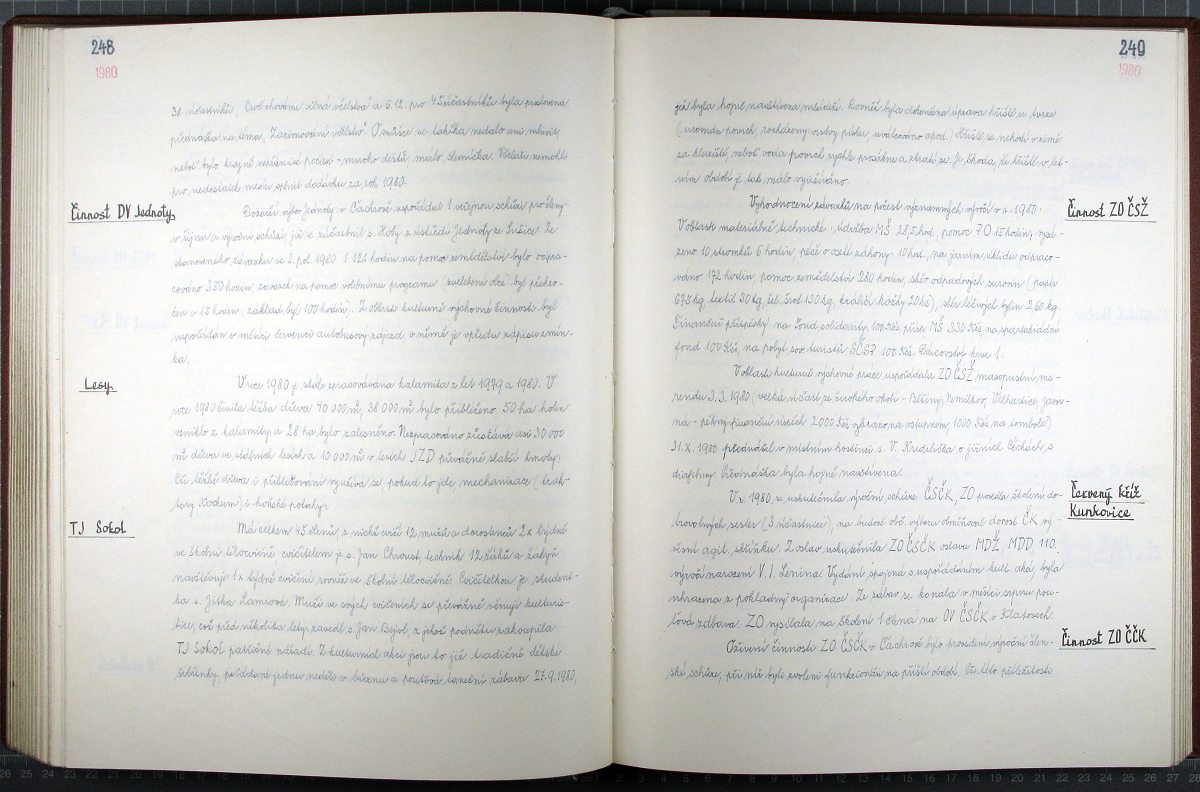 248
1980
38 účastníků „Proč chováme silná včelstva“ a 6.12. pro 45 účastníků byla pořádána
přednáška na téma „Zazimování včelstev“. O snůšce se takřka nedalo ani mluvit,
neboť bylo krajně nepříznivé počasí – mnoho dešťů, málo sluníčka. Včelaři nemohli
pro nedostatek medu splnit dodávku za rok 1980.
Činnost DV Jednoty
Dozorčí výbor Jednoty v Čachrově uspořádal 1 veřejnou schůzi pro členy
v říjnu a výroční schůzi, již se zúčastnil s. z ústředí Jednoty ze Sušice. Ze
stanoveného závazku ve 2. pol. 1980 1 121 hodin na pomoc zemědělství bylo odpra-
cováno 350 hodin, závazek na pomoc volebnímu programu (zvelebení obcí) byl překro-
čen o 15 hodin (základ byl 100 hodin). Z oblasti kulturně výchovné činnosti byl
uspořádán v měsíci červenci autobusový zájezd, o němž je vpředu zápisu zmín-
ka.
Lesy
V roce 1980 je stále zpracovávána kalamita z let 1979 a 1980. V
roce 1980 činila těžba dřeva 40 000 m³, 38 000 m³ bylo přiblíženo. 50 ha holin
vzniklo z kalamity a 28 ha bylo zalesněno. Nezpracováno zůstává asi 30 000
m³ dřeva ve státních lesích a 10 000 m³ v lesích JZD převážně slabší hmoty.
Při těžbě dřeva i přibližování využívá se, pokud to jde, mechanizace (trak-
tory) i koňské potahy.
TJ Sokol
Má celkem 45 členů, z nichž cvičí 12 mužů a dorostenců 2x týdně
ve školní tělocvičně cvičitelem je s. Jan Chroust, technik. 12 žáků a žákyň
navštěvuje 1x týdně cvičení rovněž ve školní tělocvičně. Cvičitelkou je student-
ka s. Jitka Lamsová. Muži ve svých cvičeních se převážně věnují kulturis-
tice, což před několika lety zavedl s. Jan Bejvl z jehož podnětu zakoupila
TJ Sokol patřičné nářadí. Z kulturních akcí jsou to již tradičně dětské
šibřinky, pořádané jednu neděli v březnu a pouťová taneční zábava 27.9.1980,
249
1980
jež byla hojně navštívena mládeží. Rovněž byla dokončena úprava hřiště u tvrze
(urovnán povrch, rozhrnuty vrstvy písku, uválcováno apod.). Hřiště se nehodí v zimě
za kluziště neboť voda povrch rychle prosákne a ztratí se. Je škoda, že hřiště v let-
ním období je tak málo využíváno.
Činnost ZO ČSŽ
Vyhodnocení závazků na počest významných výročí v r. 1980.
V oblasti materiálně technické: údržba MŠ 28,5 hod, pomoc PO 15 hodin, vysá-
zeno 10 stromků 6 hodin, péče o róže, záhony 10 hod., na jarním úklidu odpraco-
váno 172 hodin, pomoc zemědělství 280 hodin, sběr odpadových surovin (papír
675 kg, textil 30 kg, žel. šrot 130 kg, králičí kožky 20 ks), sběr léčivých bylin 2,60 kg.
Finanční příspěvky na Fond solidarity 100 Kčs, přísp. MŠ 330 Kčs, na spartakiádní
fond 100 Kčs, na pobyt sov. turistů SČSP 100 Kčs. Dárcovství krve 1.
V oblasti kulturně výchovné práce uspořádala ZO ČSŽ masopustní me-
rendu 8.3.1980 (velká účast ze širokého okolí – Běšiny, Nemilkov, Velhartice, Javor-
ná – pěkný finanční úspěch 2000 Kčs vybráno na vstupném, 1000 Kčs na tombole).
31.X.1980 přednášel v místním hostinci s. V. Krdrlička o jižních Čechách s
diapfilmy. Přednáška byla hojně navštívena.
Červený kříž
Kunkovice
V r. 1980 se uskutečnila výroční schůze ČSČK, ZO provedla školení do-
brovolných sester (3 účastnice), na budově obč. výboru obměňoval dorost ČK vý-
věsní agit. skříňku. Z oslav uskutečnila ZO ČSČK oslavu MDŽ, MDD, 110.
výročí narození V.I. Lenina. Vydání, spojená s uspořádáním kult. akcí, byla
uhrazena z pokladny organizace. Ze zábav se konala v měsíci srpnu pou-
ťová zábava. ZO vysílala na školení 1 člena na OV ČSČK v Klatovech.
Činnost ZO ČČK
Oživení činnosti ZO ČSČK v Čachrově bylo provedení výroční člen-
ské schůze, při níž byli zvoleni funkcionáři na příští období. Při této příležitosti